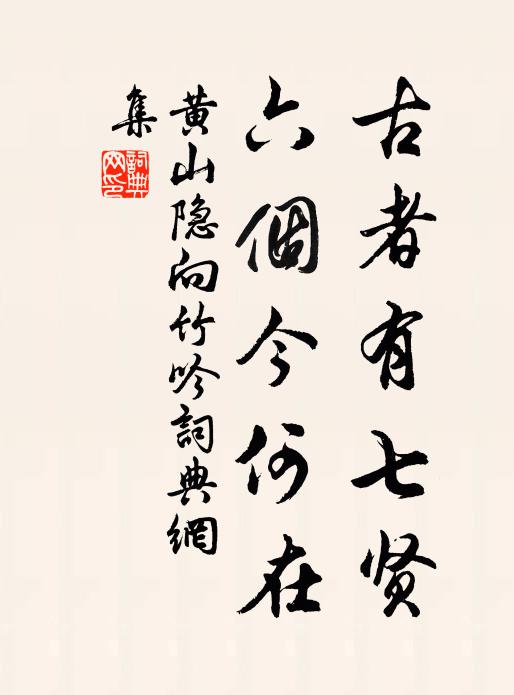 古者有七贤
六個今何在
黄山隐向竹吟詞典網
集
詞典网印